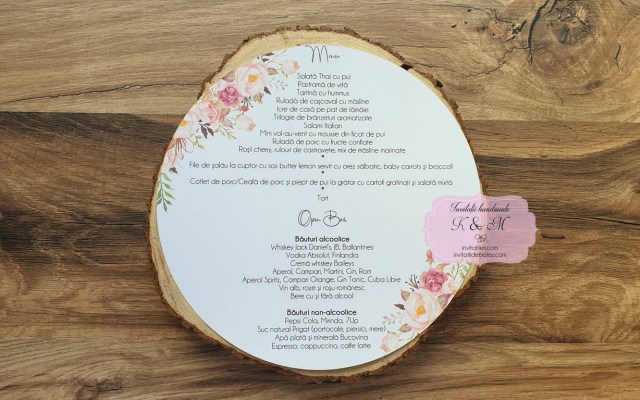 Menu
Salată Thai cu pui
Pastramă de vită
Tartină cu hummus
Ruladă de cașcaval cu măsline
Icre de casă pe pat de lămâie
Trilogie de brânzeturi aromatizate
Salami Italian
Mini vol-au-vent cu mousse din ficat de pui
Ruladă de porc cu fructe confiate
Roșii cherry, rulouri de castravete, mix de măsline marinate
File de șalău la cuptor cu sos butter lemon servit cu orez sălbatic, baby carrots și broccoli
Cotlet de porc/Ceafă de porc și piept de pui la grătar cu cartofi gratinați și salată mixtă
Tort
Open Bar
Băuturi alcoolice
Whiskey Jack Daniel's, JB, Ballantines
Vodka Absolut, Finlandia
Cremă whiskey Baileys
Aperol, Campari, Martini, Gin, Rom
Aperol Spritz, Campari Orange, Gin Tonic, Cuba Libre
Vin alb, roze și roșu românesc
Bere cu și fără alcool
Băuturi non-alcoolice
Pepsi Cola, Mirinda, 7Up
Suc natural Prigat (portocale, piersici, mere)
Apă plată și minerală Bucovina
Espresso, cappuccino, caffe latte
Invitatii handmade
K & M
invitatiikm.com
invitatiidebotez.com